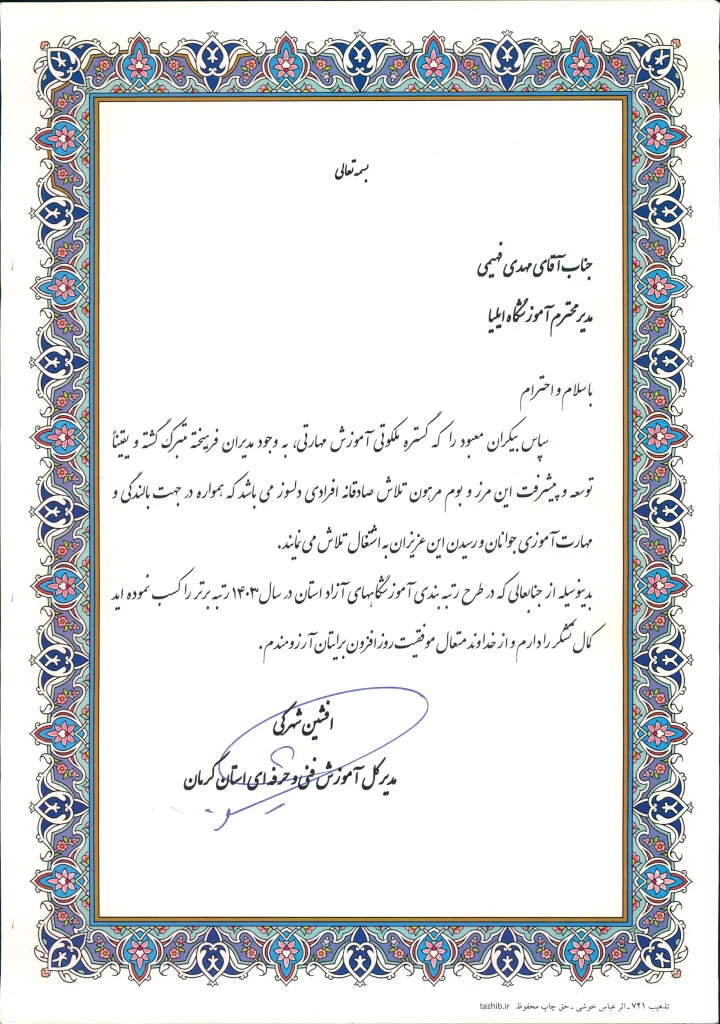 بسمه تعالی
جناب آقای مهدی فهیمی
مدیر محترم آموزشگاه ایلیا
با سلام و احترام
سپاس بیکران معبود را که گستره ملکوتی آموزش مهارتی، به وجود مدیران فرهیخته متبرک گشته و یقیناً
توسعه و پیشرفت این مرز و بوم مرهون تلاش صادقانه افرادی دلسوز می باشد که همواره در جهت بالندگی و
مهارت آموزی جوانان و رسیدن این عزیزان به اشتغال تلاش می نمایند.
بدینوسیله از جنابعالی که در طرح رتبه بندی آموزشگاههای آزاد استان در سال ۱۴۰۳ رتبه برتر را کسب نموده اید
کمال تشکر را دارم و از خداوند متعال موفقیت روز افزون برایتان آرزومندم.
افشین شهرکی
مدیر کل آموزش فنی و حرفه ای استان کرمان
تذهیب ۷۲۱ - اثر عباس خوشی - حق چاپ محفوظ tazhib.ir